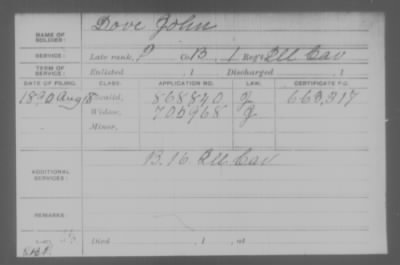 NAME OF SOLDIER: Dove John
SERVICE: Late rank, P Co. B, 1 Reg't Ill Cav
TERM OF SERVICE: Enlisted , 1 Discharged , 1
DATE OF FILING. CLASS. APPLICATION NO. LAW. CERTIFICATE NO.
1890 Aug 18 Invalid, 868840 J 663,317
Widow, 705968 J
Minor,
ADDITIONAL SERVICES: B. 16. Ill Cav
REMARKS:
Died , 1 , at